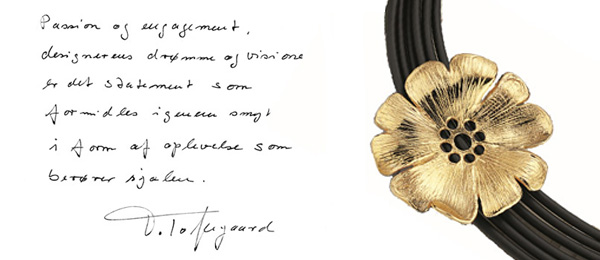 Passion og engagement,
designerens drømme og visione
er det statement som
formidles igennem smyt
i form af oplevelse som
berører sjælen.
V. Toftegaard